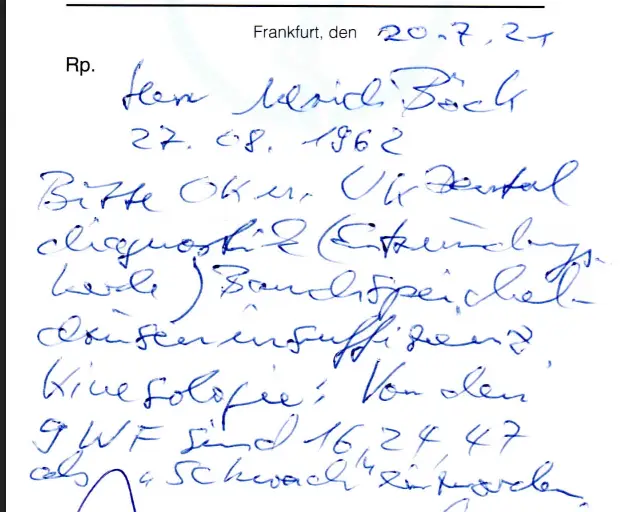 Frankfurt, den 20.7.21
Rp.
Herr Böck
27. 08. 1962
Bitte OK u. UK Dental
diagnostik (Entzündungs-
herde) Bauchspeichel-
drüseninsuffizienz
Kinesologie: Von den
9 WF sind 16, 24, 47
als "schwach"